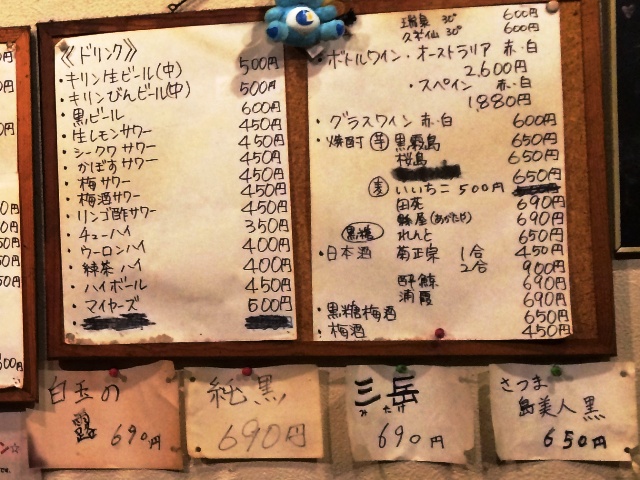 《ドリンク》
・キリン生ビール(中) 500円
・キリンびんビール(中) 500円
・黒ビール 600円
・生レモンサワー 450円
・シークワサワー 450円
・かぼすサワー 450円
・梅サワー 450円
・梅酒サワー 450円
・リンゴ酢サワー 450円
・チューハイ 350円
・ウーロンハイ 400円
・緑茶ハイ 400円
・ハイボール 450円
・マイヤーズ 500円
瑞泉 30° 600円
久米仙 30° 600円
・ボトルワイン・オーストラリア 赤・白
2,600円
・スペイン 赤・白
1,880円
・グラスワイン 赤・白 600円
・焼酎 芋 黒霧島 650円
桜島 650円
650円
麦 いいちこ 500円
田苑 690円
縣屋(あがたや) 690円
黒糖 れんと 650円
・日本酒 菊正宗 1合 450円
2合 900円
酔鯨 690円
浦霞 690円
・黒糖梅酒 650円
・梅酒 450円
白玉の
露 690円
純黒
690円
三岳
みたけ
690円
さつま
島美人 黒
650円